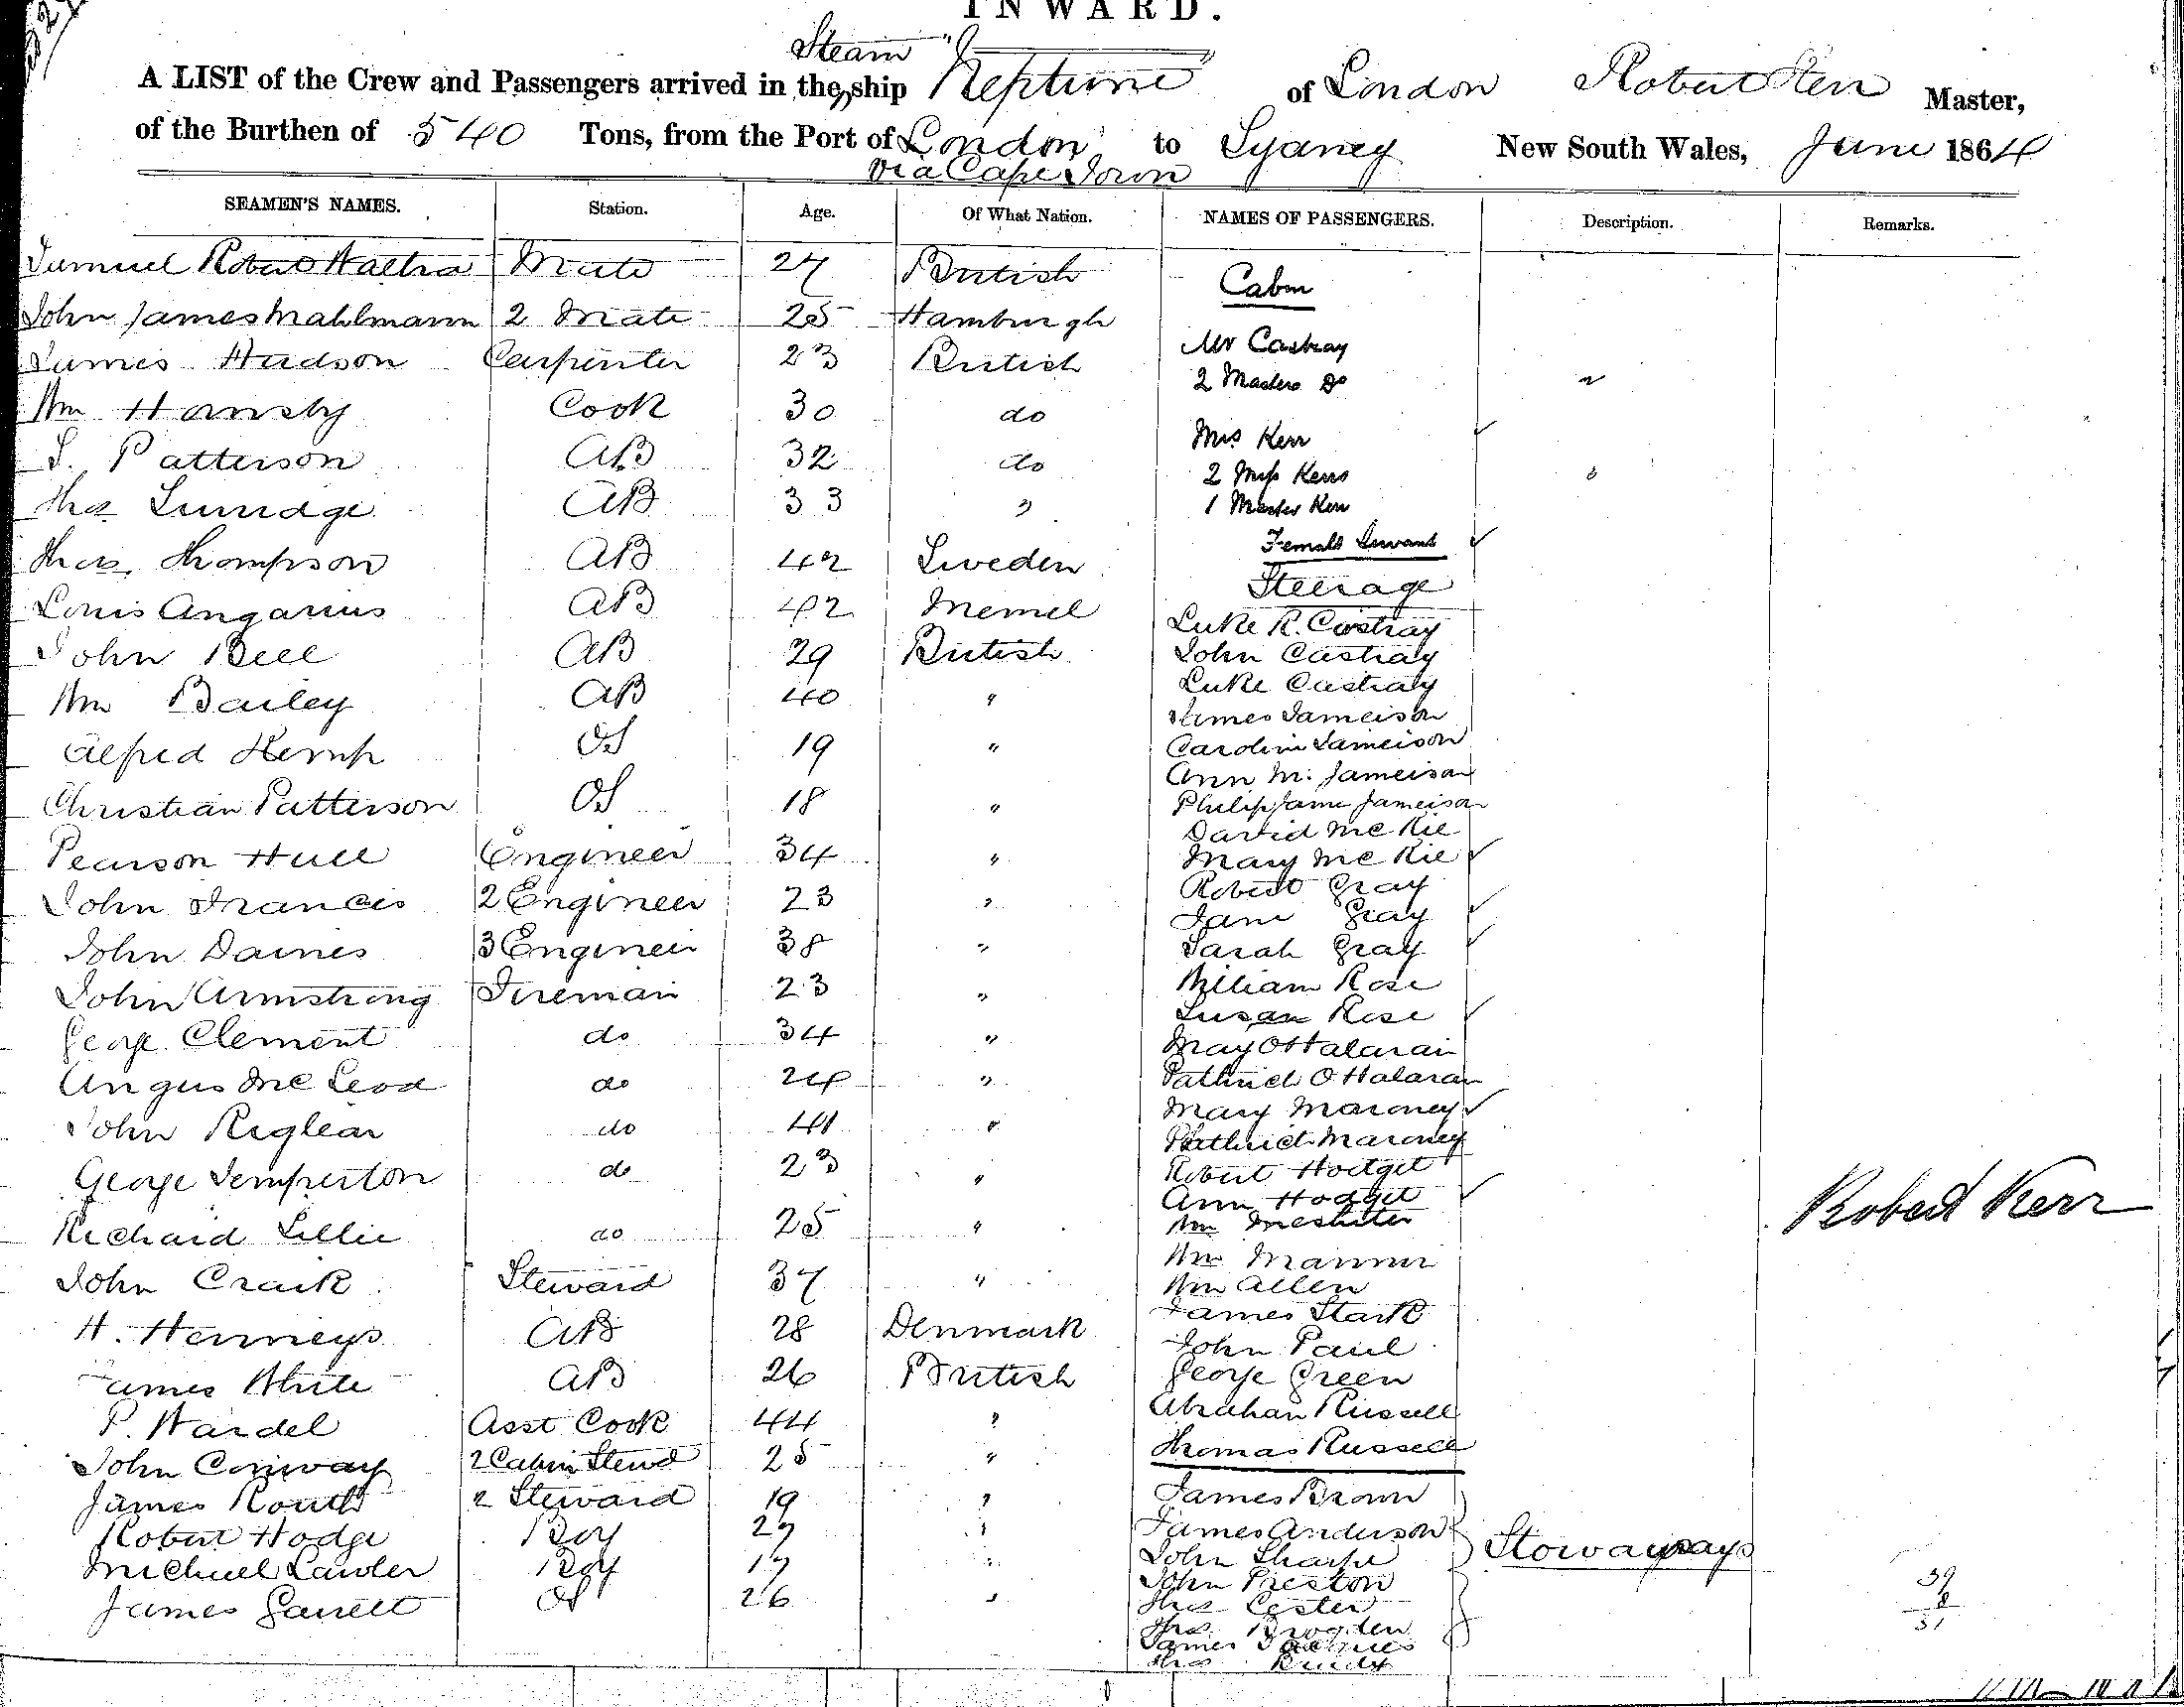 INWARD.
Steam
A LIST of the Crew and Passengers arrived in the ship "Neptune" of London Robert Kerr Master,
of the Burthen of 540 Tons, from the Port of London to Sydney New South Wales, June 1864
Via Cape Town
SEAMEN'S NAMES. Station. Age. Of What Nation. NAMES OF PASSENGERS. Description. Remarks.
Samuel Robert Mate 27 British
Cabin
John James Mahlmann 2 Mate 25 Hamburgh
Mr Castray
James Hudson Carpenter 23 British
2 Masters Do
Wm Hansby Cook 30 do
Mrs Kerr
S. Patterson AB 32 do
2 Miss Kerrs
Thos AB 33 "
1 Master Kerr
Female Servant
Thos. Thompson AB 42 Sweden
Steerage
Louis Angarius AB 42 Memel
Luke R. Castray
John Bell AB 29 British
John Castray
Luke Castray
Wm Bailey AB 40 "
James Jameison
Alfred Kemp OS 19 "
Caroline Jameison
Ann M. Jameison
Christian Patterson OS 18 "
Philip Jame Jameison
David Mc Kie
Pearson Hull Engineer 34 "
Mary Mc Kie
Robert Gray
John Francis 2 Engineer 23 "
Jane Gray
John Daines 3 Engineer 38 "
Sarah Gray
John Armstrong Fireman 23 "
William Rose
Susan Rose
George Clement do 34 "
May O Halaran
Angus Mc Leod do 24 "
Pathrick O Halaran
Mary Maroney
John Reglear do 41 "
Pathrick Maroney
George Temperton do 23 "
Robert Hodget
Ann Hodget
Robert Kerr
Richard Lillie do 25 "
Wm
Wm Manner
John Craik Steward 37 "
Wm Allen
James Stark
H. Henneys AB 28 Denmark
John Paul
James White AB 26 British
George Green
P. Wardel Asst Cook 44 "
Abraham Russell
Thomas Russell
John Conway 2 Cabin Stewd 25 "
James Routh 2 Steward 19 "
James Brown
Robert Hodge Boy "
James Anderson
Stowaways
Michael Lawler Boy 17 "
John Sharpe
John Preston
James Garrett OS 26 "
Thos Lester
Thos. Brogden
James
Thos